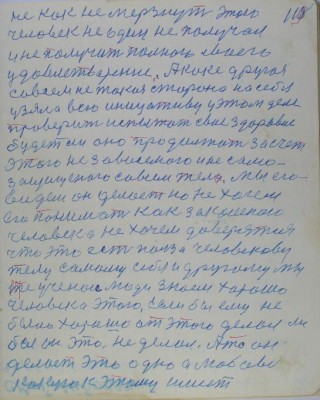 не как не мерзнут этого 119
человек не один не получал
и не получит полного своего
удовлетворение, А какe другая
совсем не такая сторона на себя
узяла всю инициативу у этом деле
проверит испытат свое здоровие
будет ли оно продолжат за счет
этого не зависимого и не само-
защищеного совсем тела, мы его
видем он делает но не хочем
его понимат как закаленого
человека не хочем доверятся
что это ест полза человекову
телу самому себя и другому мы
те ученою люди знаем хорошо
человека этого, если бы ему не
было хорошо от этого делал ли
бы он это. не делал. А то он
делает это одно а мабсебе
как у к этому имеет